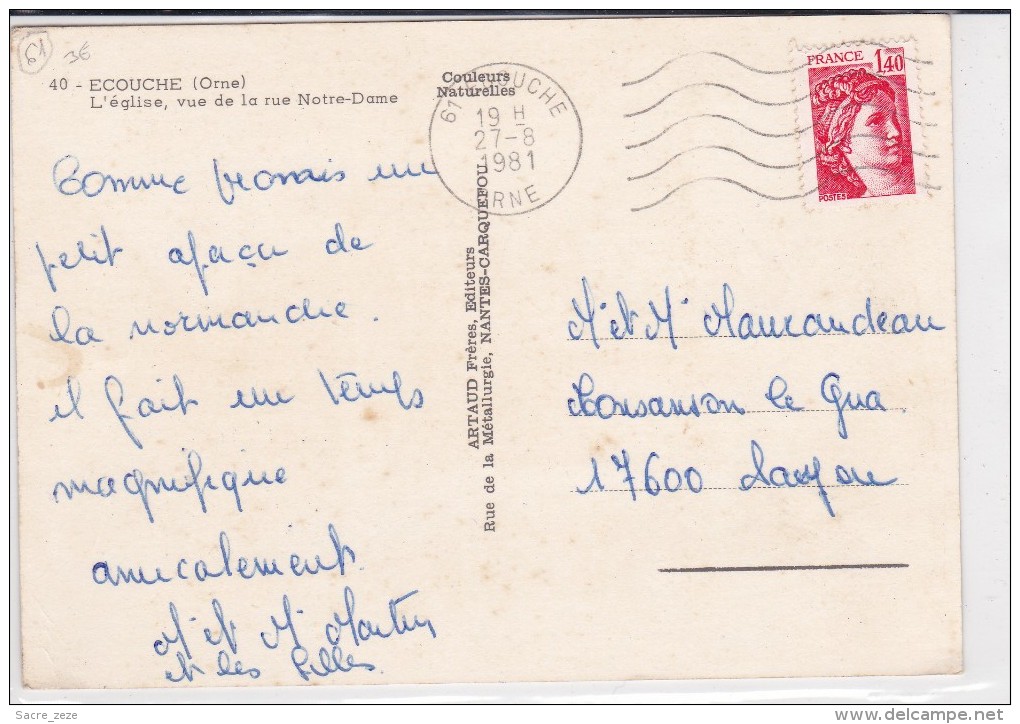 61 3€
40 - ECOUCHE (Orne)
L'église, vue de la rue Notre-Dame
Couleurs
Naturelles
61 ECOUCHE
19 H
27-8
1981
ORNE
FRANCE 1,40
POSTES
un
petit aperçu de
la normandie.
il fait un temps
magnifique
amicalement
Mr et Me Martin
et les filles.
ARTAUD Frères, Editeurs
Rue de la Métallurgie, NANTES-CARQUEFOU
Mr et Me Mauxandeau
le Gua
17600 Saujon
Sacre_zeze
www.delcampe.net